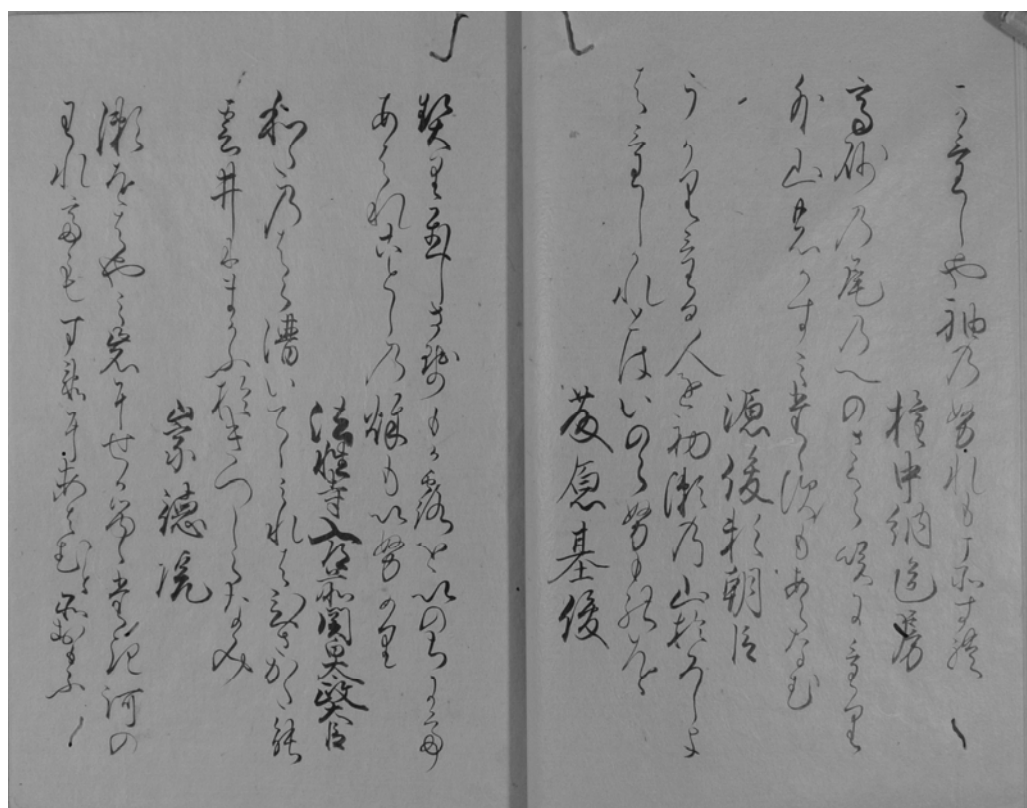 かけしや袖のぬれもこそすれ
権中納言匡房
高砂の尾のへのさくら咲にけり
外山のかすみたゝすもあらなむ
源俊頼朝臣
うかりける人を初瀬の山おろしよ
はけしかれとはいのらぬものを
藤原基俊
契りをきしさせもか露をいのちにて
あはれことしの秋もいぬめり
法性寺入道前関白太政大臣
和たのはら漕いてゝみれは久かたの
雲井にまかふ於きつしらなみ
崇徳院
瀬をはやみ岩にせかるゝたき河の
われてもすゑにあはむとそおもふ